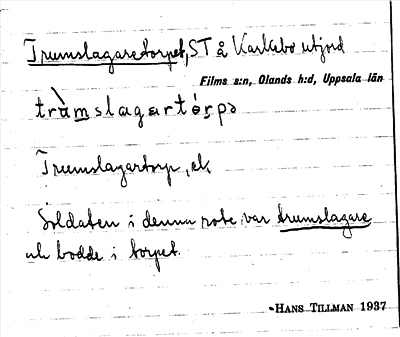 Trumslagaretorpet, ST å Karlebo utjord
Films s:n, Olands h:d, Uppsala län
tràmslagartórpə
Trumslagartorp, ek
Soldaten i denna rote var trumslagare
och bodde i torpet.
HANS TILLMAN 1937